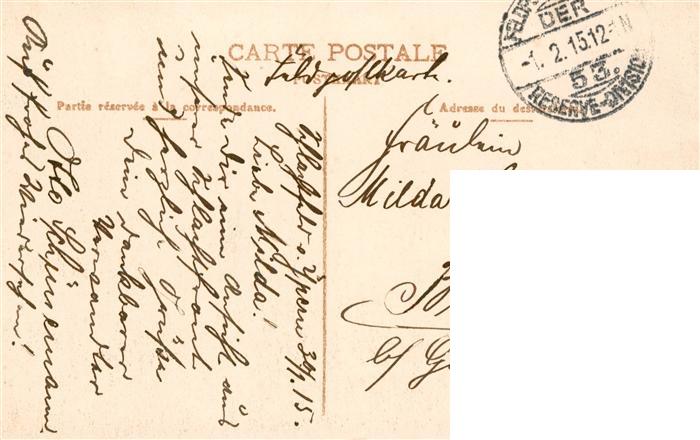 CARTE POSTALE
POST CART
Feldpostkarte.
Partie réservée à la correspondance.
Adresse du des
FELDP
DER
-1. 2. 15. 12-1 N
53.
RESERVE-DIVISIO
Schlachtfeld v. Ypern 30/1. 15.
Liebe Milda!
Sende Dir eine Ansicht aus
unserer Schlachtfront
und herzliche Grüße
Dein dankbarer
Verwandter
Otto Schünemann
Auf frohes Wiedersehen!
Fräulein
Milda
b/ G